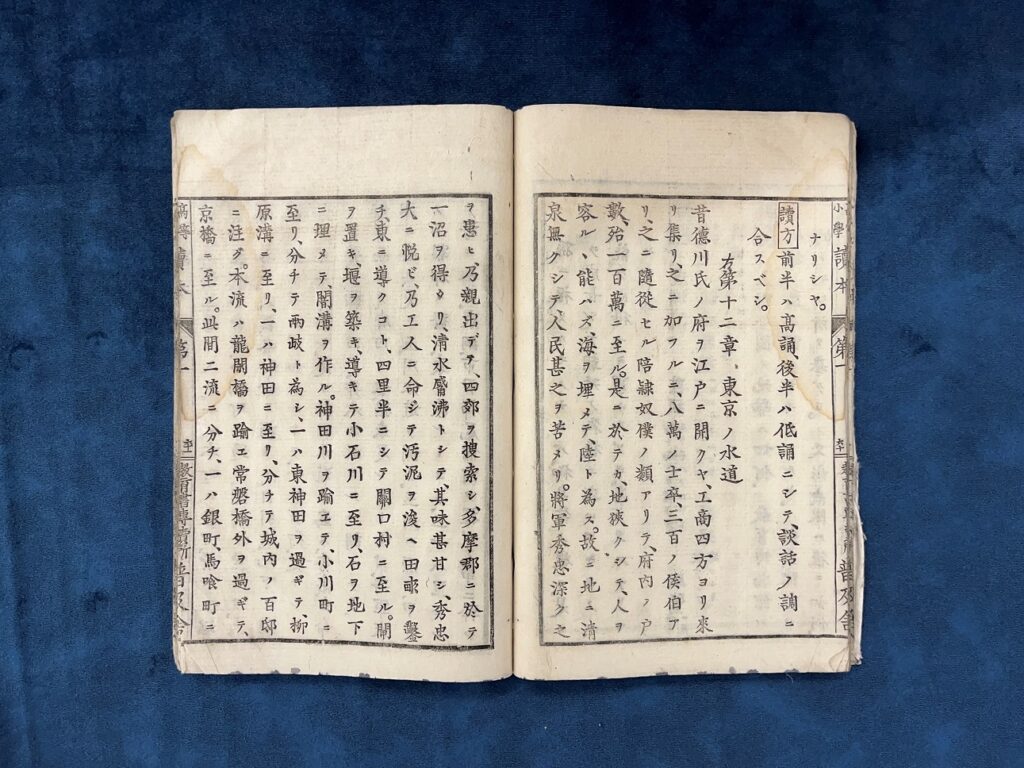 小學讀本
第一
普及舍
ナリシヤ。
讀方 前半ハ高誦、後半ハ低誦ニシテ、談話ノ調ニ
合スベシ。
第十二章 東京ノ水道
昔德川氏ノ府ヲ江戸ニ開クヤ、工商四方ヨリ來
リ集リ、之ニ加フルニ、八萬ノ士卒、三百ノ侯伯ア
リ、之ニ隨從セル陪隷奴僕ノ類アリテ、府內ノ戸
數、殆一百萬ニ至ル。是ニ於テカ、地狹クシテ、人ヲ
容ルヽ能ハズ、海ヲ埋メテ、陸ト為ス。故ニ地ニ清
泉無クシテ、人民甚之ヲ苦メリ。將軍秀忠深ク之
ヲ患ヒ、乃親出デヽ、四郊ヲ搜索シ、多摩郡ニ於テ
一沼ヲ得タリ、清水觱沸トシテ、其味甚甘シ、秀忠
大ニ悅ビ、乃工人ニ命ジテ汚泥ヲ浚ヘ田畝ヲ鑿
チ、東ニ導クコト、四里半ニシテ關口村ニ至ル。閘
ヲ置キ、堰ヲ築キ、導キテ小石川ニ至リ、石ヲ地下
ニ埋メテ、闇溝ヲ作ル。神田川ヲ踰エテ、小川町ニ
至リ、分チテ兩岐ト為シ、一ハ東神田ヲ過ギテ、柳
原溝ニ至リ、一ハ神田ニ至リ、分チテ城內ノ百邸
ニ注グ。本流ハ龍閑橋ヲ踰エ常磐橋外ヲ過ギテ、
京橋ニ至ル。此間二流ニ分チ、一ハ銀町、馬喰町ニ
讀本
第一
教育書專賣所 普及舍